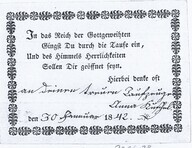 In das Reich der Gottgeweihten
Gingst Du durch die Taufe ein,
Und des Himmels Herrlichkeiten
Sollen Dir geöffnet seyn.
Hierbei denke oft
an deinen treuen Taufzeugen
Anna
den 30 Januar 1842.